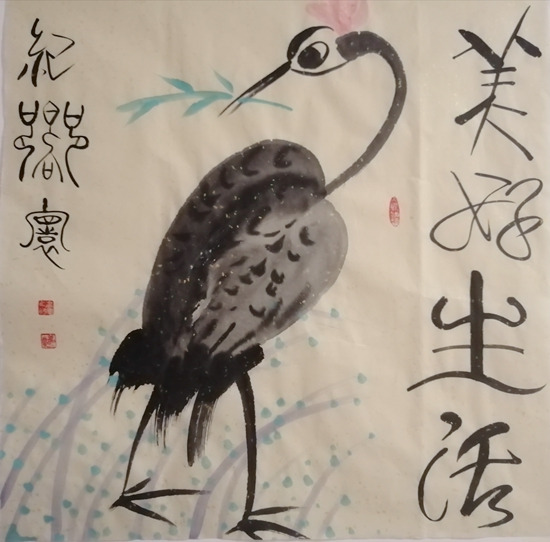 美好生活
紀寰